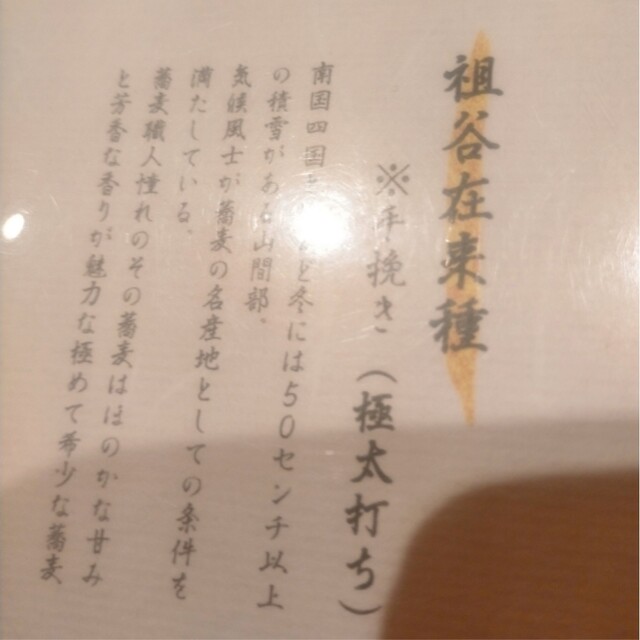 祖谷在来種
※手挽き（極太打ち）
南国四国 冬には50センチ以上
の積雪がある山間部、
気候風土が蕎麦の名産地としての条件を
満たしている。
蕎麦職人憧れのその蕎麦はほのかな甘み
と芳香な香りが魅力な極めて希少な蕎麦